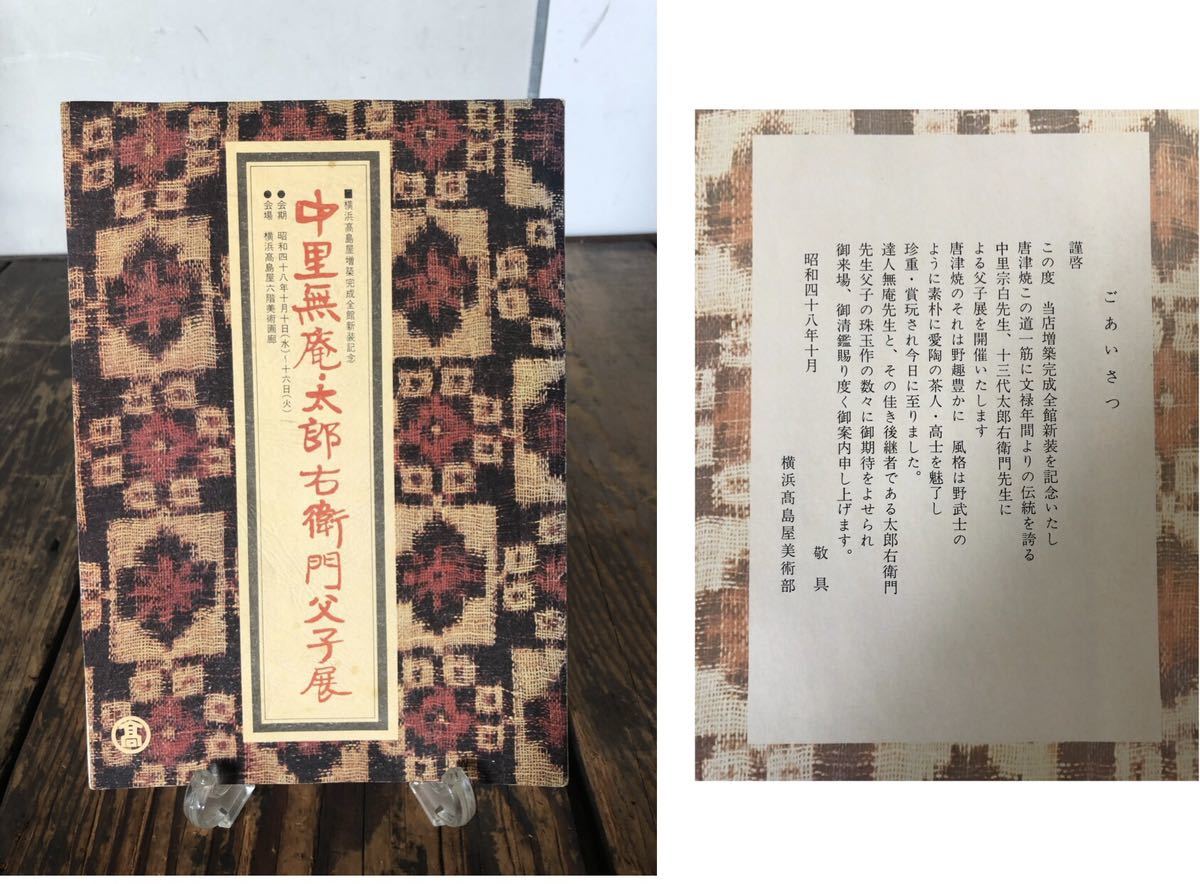 ■横浜髙島屋増築完成全館新装記念
中里無庵・太郎右衛門父子展
●会期 昭和四十八年十月十日(水)〜十六日(火)
●会場 横浜髙島屋六階美術画廊
髙
ごあいさつ
謹啓
この度 当店増築完成全館新装を記念いたし
唐津焼この道一筋に文禄年間よりの伝統を誇る
中里宗白先生、十三代太郎右衛門先生に
よる父子展を開催いたします
唐津焼のそれは野趣豊かに 風格は野武士の
ように素朴に愛陶の茶人・高士を魅了し
珍重・賞玩され今日に至りました。
達人無庵先生と、その佳き後継者である太郎右衛門
先生父子の珠玉作の数々に御期待をよせられ
御来場、御清鑑賜り度く御案内申し上げます。
敬具
昭和四十八年十月
横浜髙島屋美術部